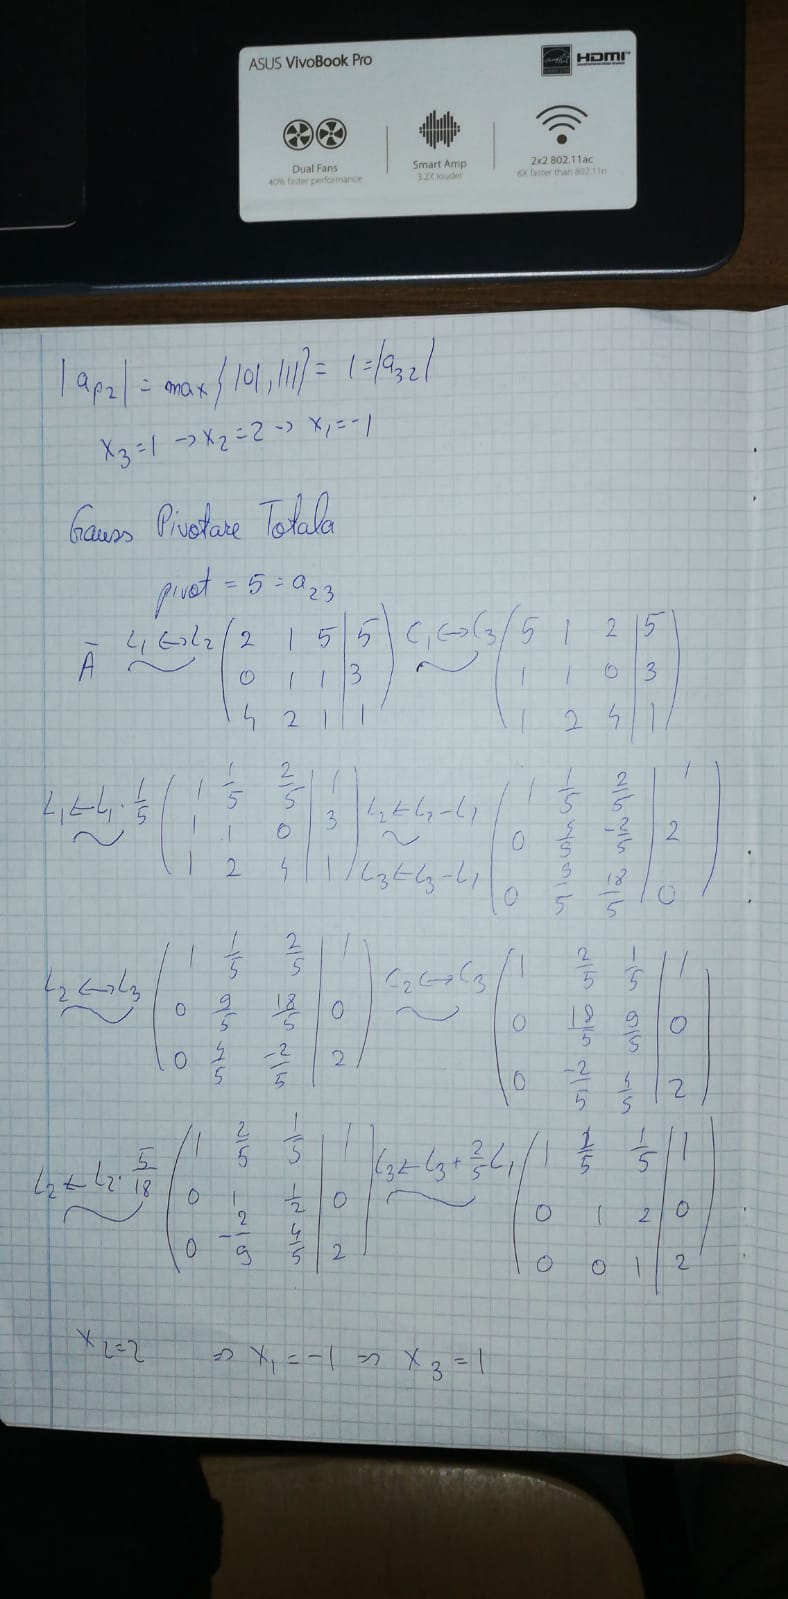 ASUS VivoBook Pro
HDMI
Dual Fans
40% faster performance
Smart Amp
3.2X louder
2x2 802.11ac
6X faster than 802.11n
|a_{p2}| = max{|0|, |1|} = 1 = |a_{32}|
x_3=1 → x_2=2 → x_1=-1
Gauss Pivotare Totala
pivot = 5 = a_{23}
Ā L_1↔L_2 ( 2 1 5 | 5 ; 0 1 1 | 3 ; 4 2 1 | 1 ) C_1↔C_3 ( 5 1 2 | 5 ; 1 1 0 | 3 ; 1 2 4 | 1 )
L_1←L_1·1/5 ( 1 1/5 2/5 | 1 ; 1 1 0 | 3 ; 1 2 4 | 1 ) L_2←L_2-L_1 L_3←L_3-L_1 ( 1 1/5 2/5 | 1 ; 0 4/5 -2/5 | 2 ; 0 9/5 18/5 | 0 )
L_2↔L_3 ( 1 1/5 2/5 | 1 ; 0 9/5 18/5 | 0 ; 0 4/5 -2/5 | 2 ) C_2↔C_3 ( 1 2/5 1/5 | 1 ; 0 18/5 9/5 | 0 ; 0 -2/5 4/5 | 2 )
L_2←L_2·5/18 ( 1 2/5 1/5 | 1 ; 0 1 1/2 | 0 ; 0 -2/9 4/5 | 2 ) L_3←L_3+2/5L_1 ( 1 2/5 1/5 | 1 ; 0 1 2 | 0 ; 0 0 1 | 2 )
x_2=2 ⇒ x_1=-1 ⇒ x_3=1